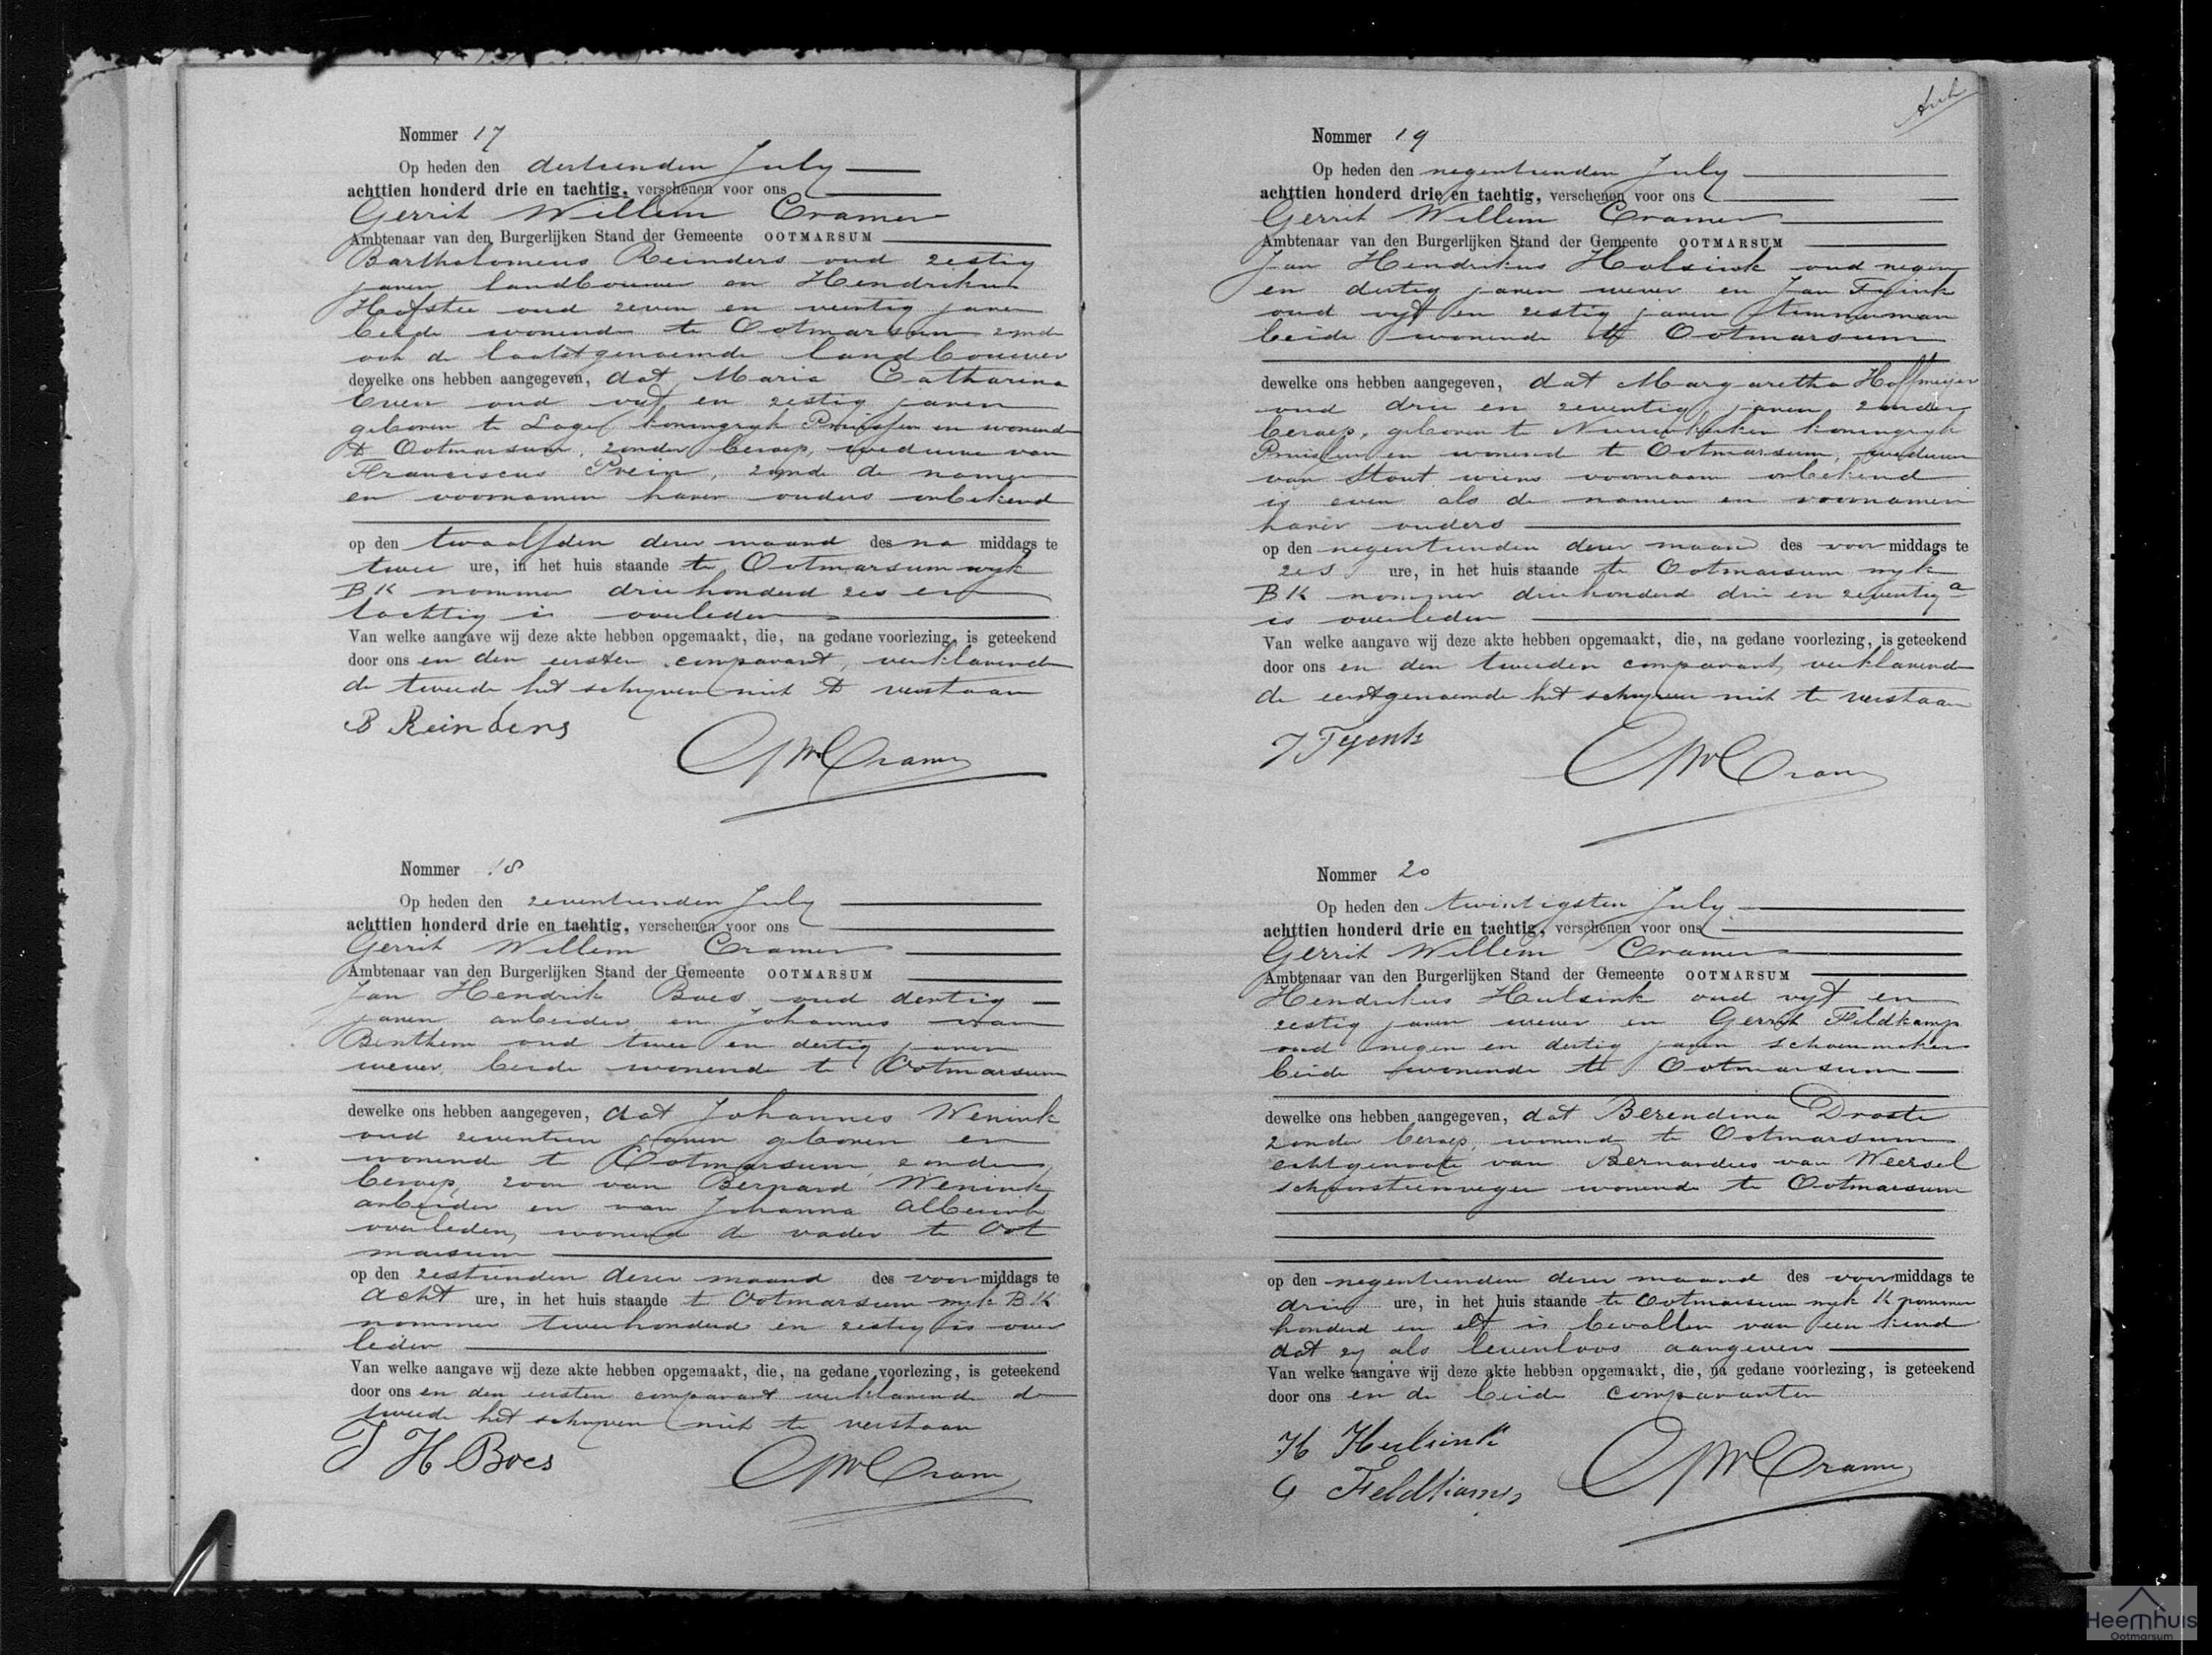 Nommer 17
Op heden den dertienden July
achttien honderd drie en tachtig, verschenen voor ons
Gerrit Willem Cramer
Ambtenaar van den Burgerlijken Stand der Gemeente OOTMARSUM
Bartholomeus Reinders oud zestig
jaren landbouwer en Hendrikus
Hofstee oud zeven en veertig jaren
beide wonende te Ootmarsum zynde
ook de laatstgenoemde landbouwer
dewelke ons hebben aangegeven, dat Maria Catharina
Even oud vyf en zestig jaren
geboren te Lage koningryk Pruissen en wonende
te Ootmarsum, zonder beroep, weduwe van
Franciscus Prein, zynde de namen
en voornamen harer ouders onbekend
op den twaalfden dezer maand des na middags te
twee ure, in het huis staande te Ootmarsum wyk
BK nommer driehonderd zes en
tachtig is overleden
Van welke aangave wij deze akte hebben opgemaakt, die, na gedane voorlezing, is geteekend
door ons en den eersten comparant, verklarende
de tweede het schryven niet te verstaan
B Reinders
GWCramer
Nommer 18
Op heden den zeventienden July
achttien honderd drie en tachtig, verschenen voor ons
Gerrit Willem Cramer
Ambtenaar van den Burgerlijken Stand der Gemeente OOTMARSUM
Jan Hendrik Boes oud dertig
jaren arbeider en Johannes van
Benthem oud twee en dertig jaren
wever beide wonende te Ootmarsum
dewelke ons hebben aangegeven, dat Johannes Wenink
oud zeventien jaren geboren en
wonende te Ootmarsum, zonder
beroep, zoon van Bernard Wenink
arbeider en van Johanna Alberink
overleden, wonende de vader te Oot
marsum
op den zestienden dezer maand des voor middags te
acht ure, in het huis staande te Ootmarsum wyk BK
nommer tweehonderd en zestig is over
leden
Van welke aangave wij deze akte hebben opgemaakt, die, na gedane voorlezing, is geteekend
door ons en den eersten comparant verklarende de
tweede het schryven niet te verstaan
J H Boes
GWCramer
Nommer 19
Op heden den negentienden July
achttien honderd drie en tachtig, verschenen voor ons
Gerrit Willem Cramer
Ambtenaar van den Burgerlijken Stand der Gemeente OOTMARSUM
Jan Hendrikus Holsink oud negen
en dertig jaren wever en Jan Tyink
oud vyf en zestig jaren timmerman
beide wonende te Ootmarsum
dewelke ons hebben aangegeven, dat Margaretha Hoffmeijer
oud drie en zeventig jaren, zonder
beroep, geboren te Nieuwkerken koningryk
Pruissen en wonend te Ootmarsum, weduwe
van Stout wiens voornaam onbekend
is even als de namen en voornamen
harer ouders
op den negentienden dezer maand des voor middags te
zes ure, in het huis staande te Ootmarsum wyk
BK nommer driehonderd drie en zeventig a
is overleden
Van welke aangave wij deze akte hebben opgemaakt, die, na gedane voorlezing, is geteekend
door ons en den tweeden comparant, verklarende
de eerstgenoemde het schryven niet te verstaan
J Tyenk
GWCramer
Nommer 20
Op heden den twintigsten July
achttien honderd drie en tachtig, verschenen voor ons
Gerrit Willem Cramer
Ambtenaar van den Burgerlijken Stand der Gemeente OOTMARSUM
Hendrikus Hulsink oud vyf en
zestig jaren wever en Gerrit Feldkamp
oud negen en dertig jaren schoenmaker
beide wonende te Ootmarsum
dewelke ons hebben aangegeven, dat Berendina Droste
zonder beroep, wonende te Ootmarsum
echtgenoote van Bernardus van Weersel
schoorsteenveger wonende te Ootmarsum
op den negentienden dezer maand des voor middags te
drie ure, in het huis staande te Ootmarsum wyk K nommer
honderd en elf is bevallen van een kind
dat zy als levenloos aangeven
Van welke aangave wij deze akte hebben opgemaakt, die, na gedane voorlezing, is geteekend
door ons en de beide comparanten
H Hulsink
G Feldkamp
GWCramer
Heemhuis
Ootmarsum